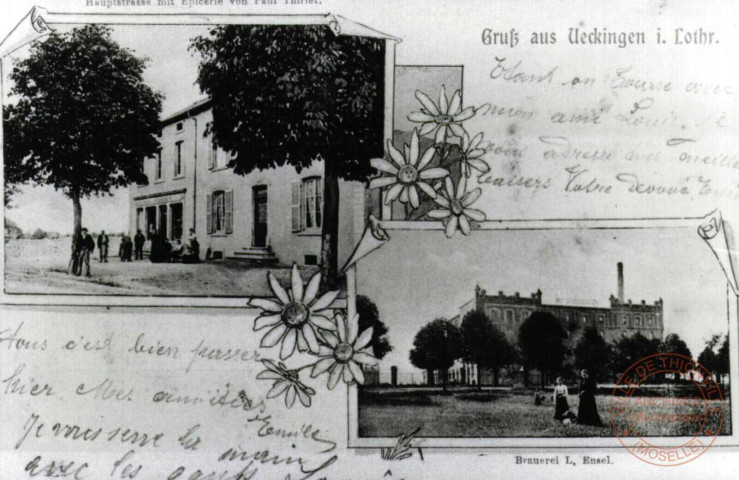 Hauptstrasse mit Epicerie von Paul Thiriet.
Gruß aus Ueckingen i. Lothr.
Étant en tourné avec
mon ami Louis, je
vous adresse mes meilleurs
baisers Votre dévoué Emile
Tous c'est bien passer
hier. Mes amitiés
Emile
Je vous serre la main
avec les
Brauerei L. Ensel.
VILLE DE THIONVILLE
(MOSELLE)